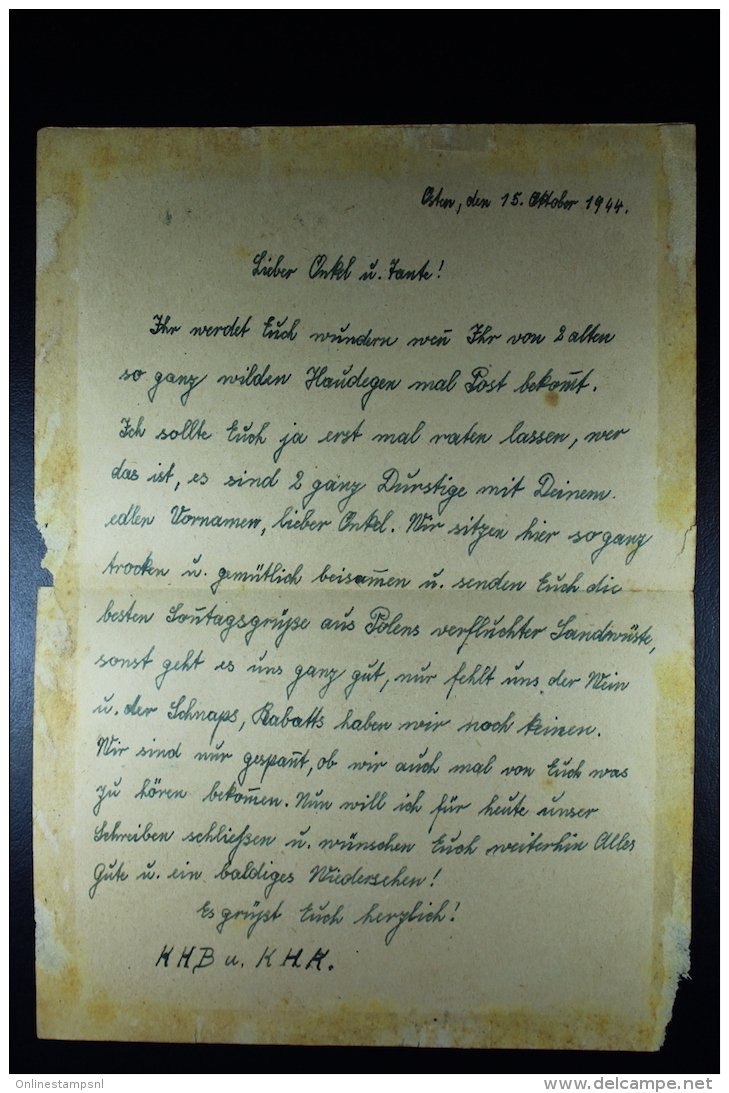 Osten, den 15. Oktober 1944.
Lieber Onkel u. Tante!
Ihr werdet Euch wundern weñ Ihr von 2 alten
so ganz wilden Haudegen mal Post bekom̄t.
Ich sollte Euch ja erst mal raten lassen, wer
das ist, es sind 2 ganz Durstige mit Deinem
edlen Vornamen, lieber Onkel. Wir sitzen hier so ganz
trocken u. gemütlich beisam̄en u. senden Euch die
besten Soñtagsgrüsse aus Polens verfluchter Sandwüste,
sonst geht es uns ganz gut, nur fehlt uns der Wein
u. der Schnaps, Rabatts haben wir noch keinen.
Wir sind nur gespañt, ob wir auch mal von Euch was
zu hören bekom̄en. Nun will ich für heute unser
Schreiben schließen u. wünschen Euch weiterhin Alles
Gute u. ein baldiges Wiedersehen!
Es grüsst Euch herzlich!
KHB u. KHK.
Onlinestampsnl
http://www.delcampe.net